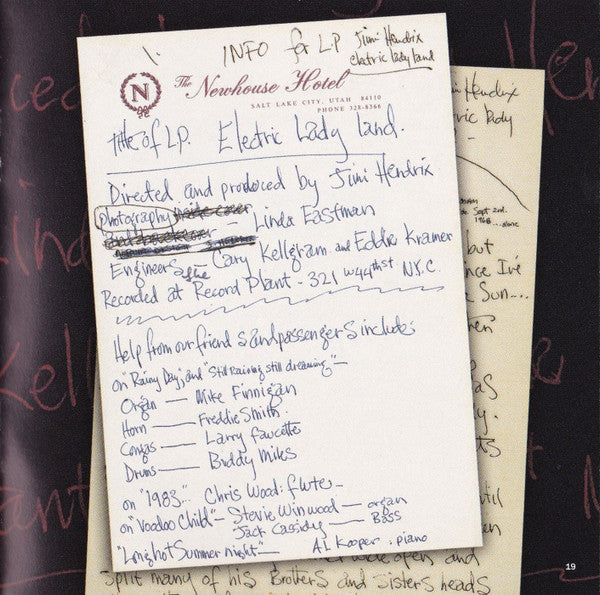 1.
INFO for L.P. Jimi Hendrix
electric lady land
N
The Newhouse Hotel
SALT LAKE CITY, UTAH 84110
PHONE 328-8366
title of L.P. Electric Lady Land.
Directed and produced by Jimi Hendrix
photography — Linda Eastman
Engineers — Gary Kellgram and Eddie Kramer
Recorded at Record Plant - 321 w 44th st N.Y.C.
Help from our friends and passengers include:
on "Rainy Day," and "Still Raining still dreaming" —
Organ — Mike Finnigan
Horn — Freddie Smith.
Congas — Larry faucette
Drums — Buddy Miles
on "1983"... Chris Wood: flute —
on "Voodoo Child" — Stevie Winwood — organ
Jack Cassidy — Bass
"Long hot Summer night" — AL Kooper : piano
Hendrix
Sept 2nd.
1968
but
Sun....
open and
split many of his Brothers and Sisters heads
19